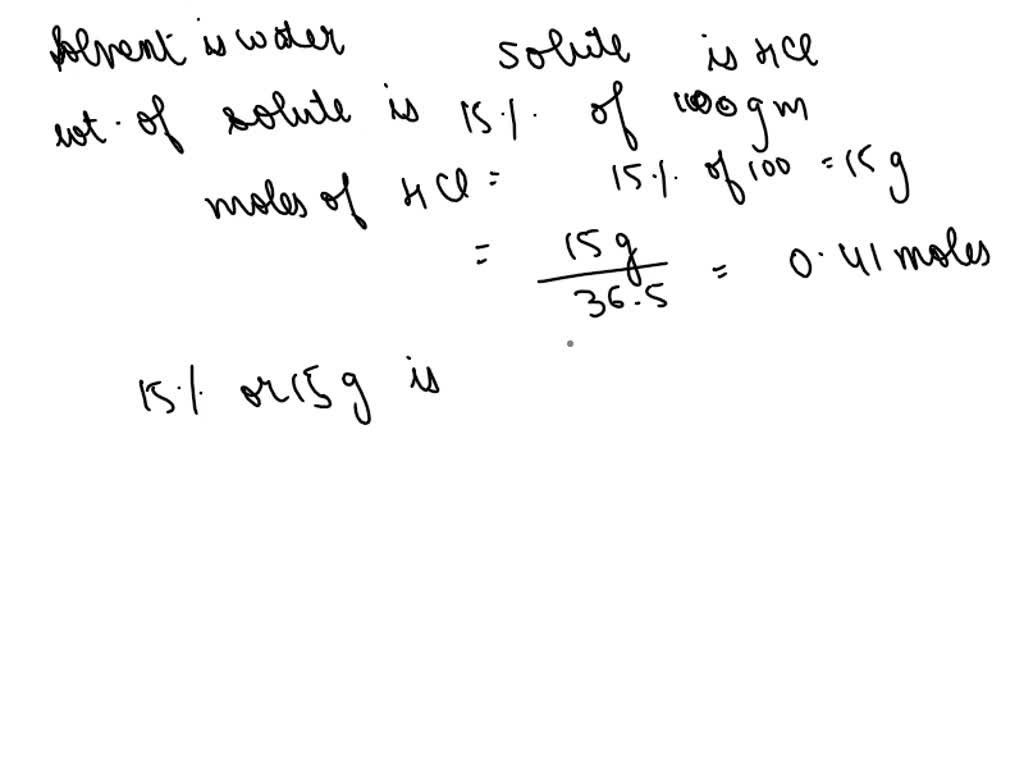 Solvent is water solute is HCl
wt. of solute is 15% of 100gm
moles of HCl = 15% of 100 = 15g
= 15g / 36.5 = 0.41 moles
15% or 15g is